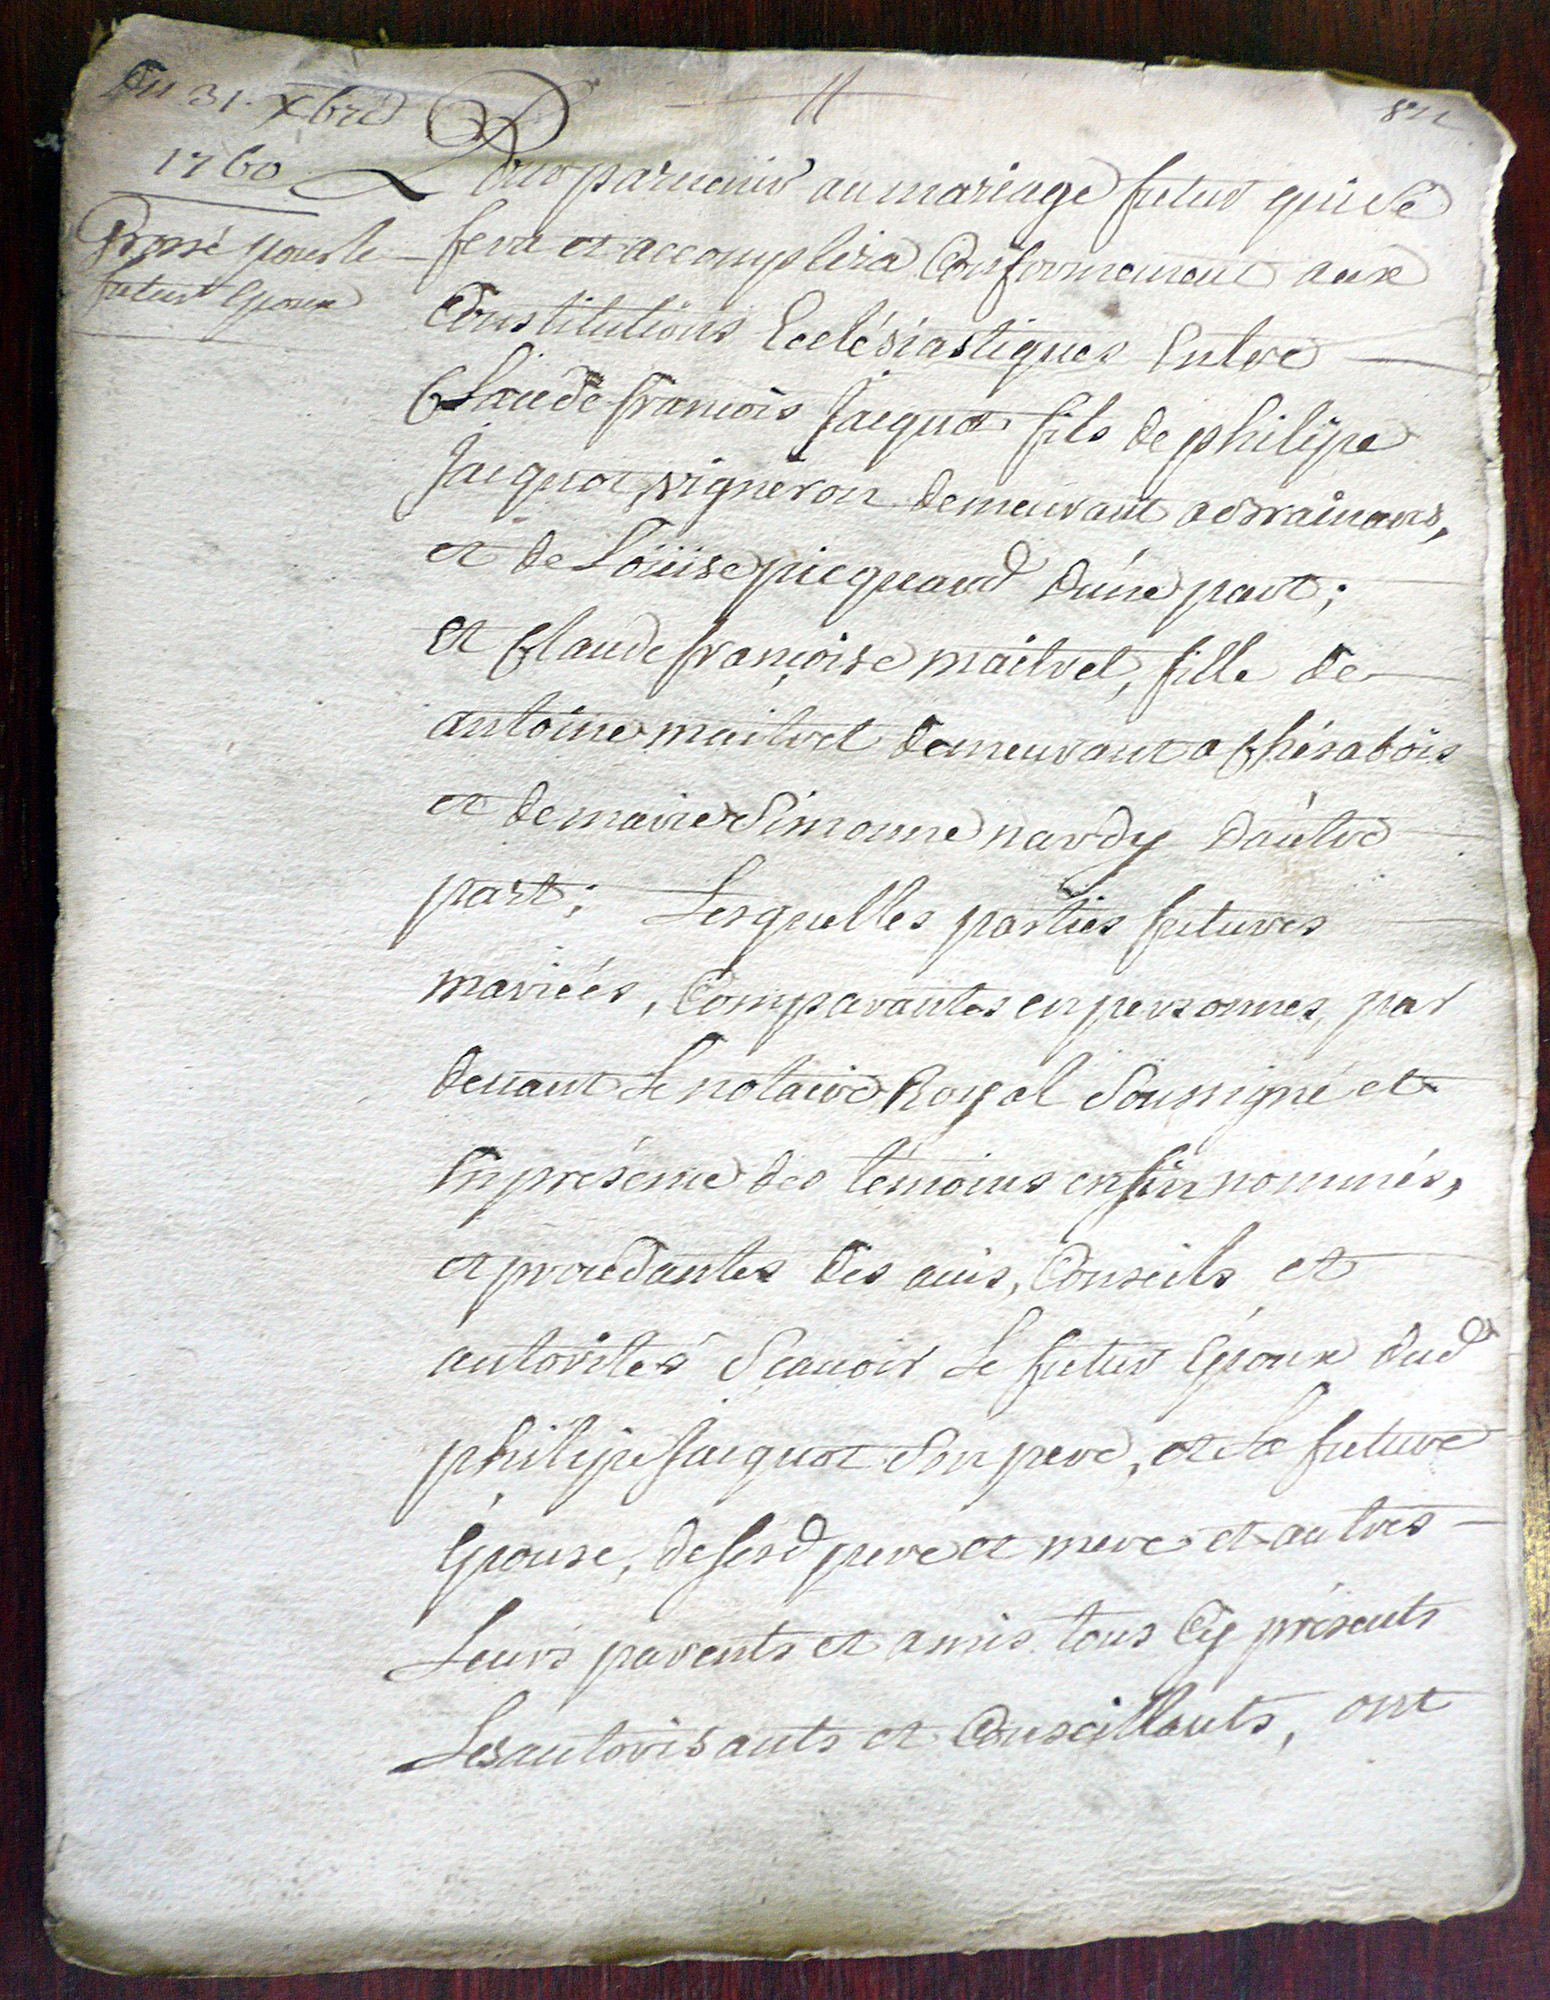 Du 31. Xbre
1760
Grossé pour le
futur Epoux
Pour paruenir au mariage futur qui se
fera et accomplira Conformement aux
Constitutions Ecclésiastiques Entre
Claude françois Jacquot fils de philipe
Jacquot, vigneron demeurant a
et de Loüise picquard d'une part;
et Claude françoise maitret, fille de
antoine maitret demeurant a
et de marie Simonne nardy d'autre
part; Lesquelles parties futures
mariées, Comparantes en personnes, par
deuant Le notaire Royal Soussigné et
En présence des témoins enfin nommés,
et procédantes des auis, Conseils et
autorités Sçauoir Le futur Epoux dud
philipe Jacquot Son pere, et La future
Epouse, de sesd pere et mere et autres
Leurs parents et amis tous Cy présents
Les autorisants et Conseillants, ont